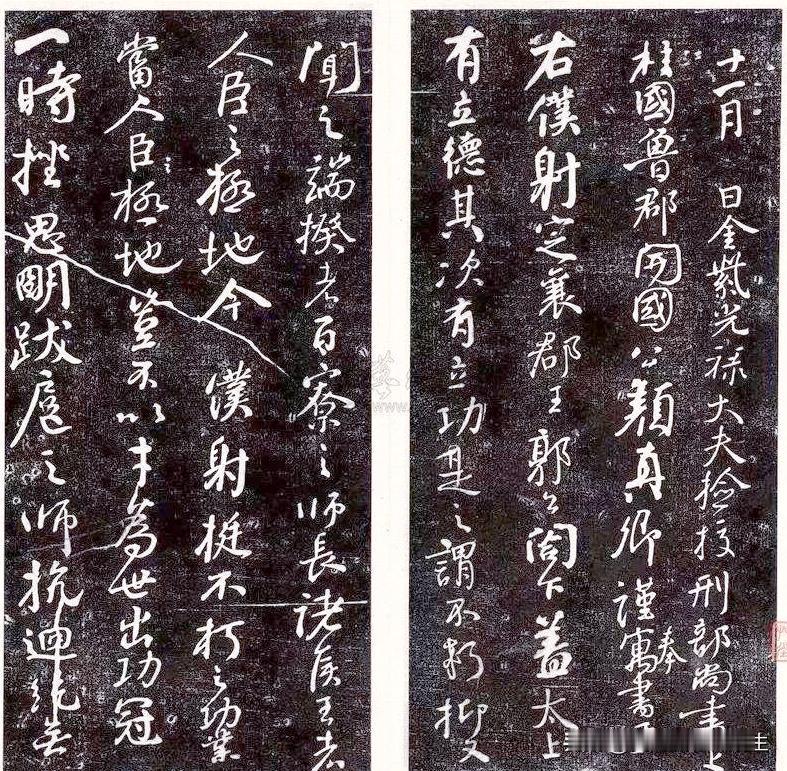 十一月 日金紫光祿大夫撿挍刑部尚書上
柱國魯郡開國公顏真卿謹奉寓書于
右僕射定襄郡王郭公閤下蓋太上
有立德其次有立功是之謂不朽抑又
聞之端揆者百寮之師長諸侯王者
人臣之極地今僕射挺不朽之功業
當人臣之極地豈不以才為世出功冠
一時挫思明跋扈之師抗迴紇無